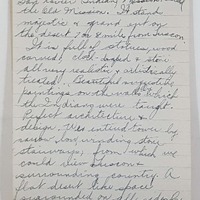 San Xavier Indian Mission
the Old Mission. It stands
majestic & grand out on
the desert 7 or 8 miles from Tucson
It is full of statues, wood
carved, cloth draped &
all very realistic & artistically
treated. Beautiful
paintings, on the walls which
the Indians were taught.
Perfect architecture &
design. Was entend tower by
narrow long winding stone
stairways, from which we
could view Tucson &
surrounding country. A
flat desert like space
surrounded on all